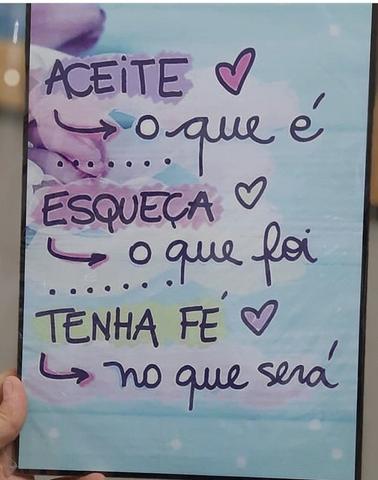 ACEiTE
o que é
ESQUEÇA
o que foi
TENHA FÉ
no que será